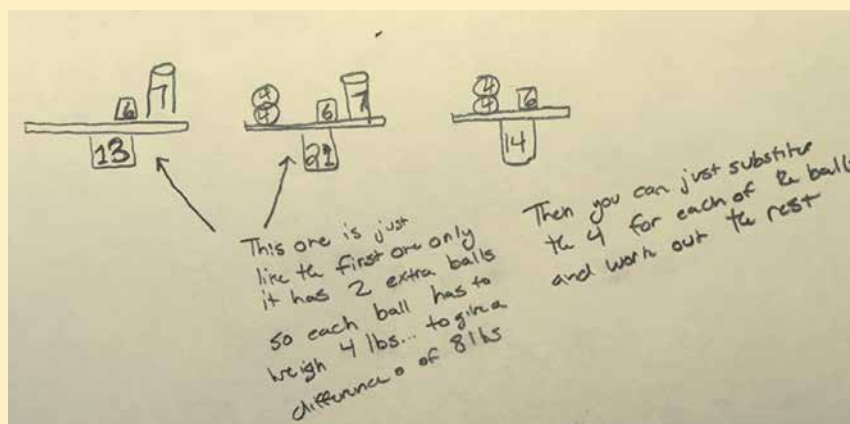 6 7
13
4
4 6 7
21
4
4 6
14
This one is just
like the first one only
it has 2 extra balls
so each ball has to
weigh 4 lbs... to give a
difference of 8 lbs
Then you can just substitute
the 4 for each of the balls
and work out the rest